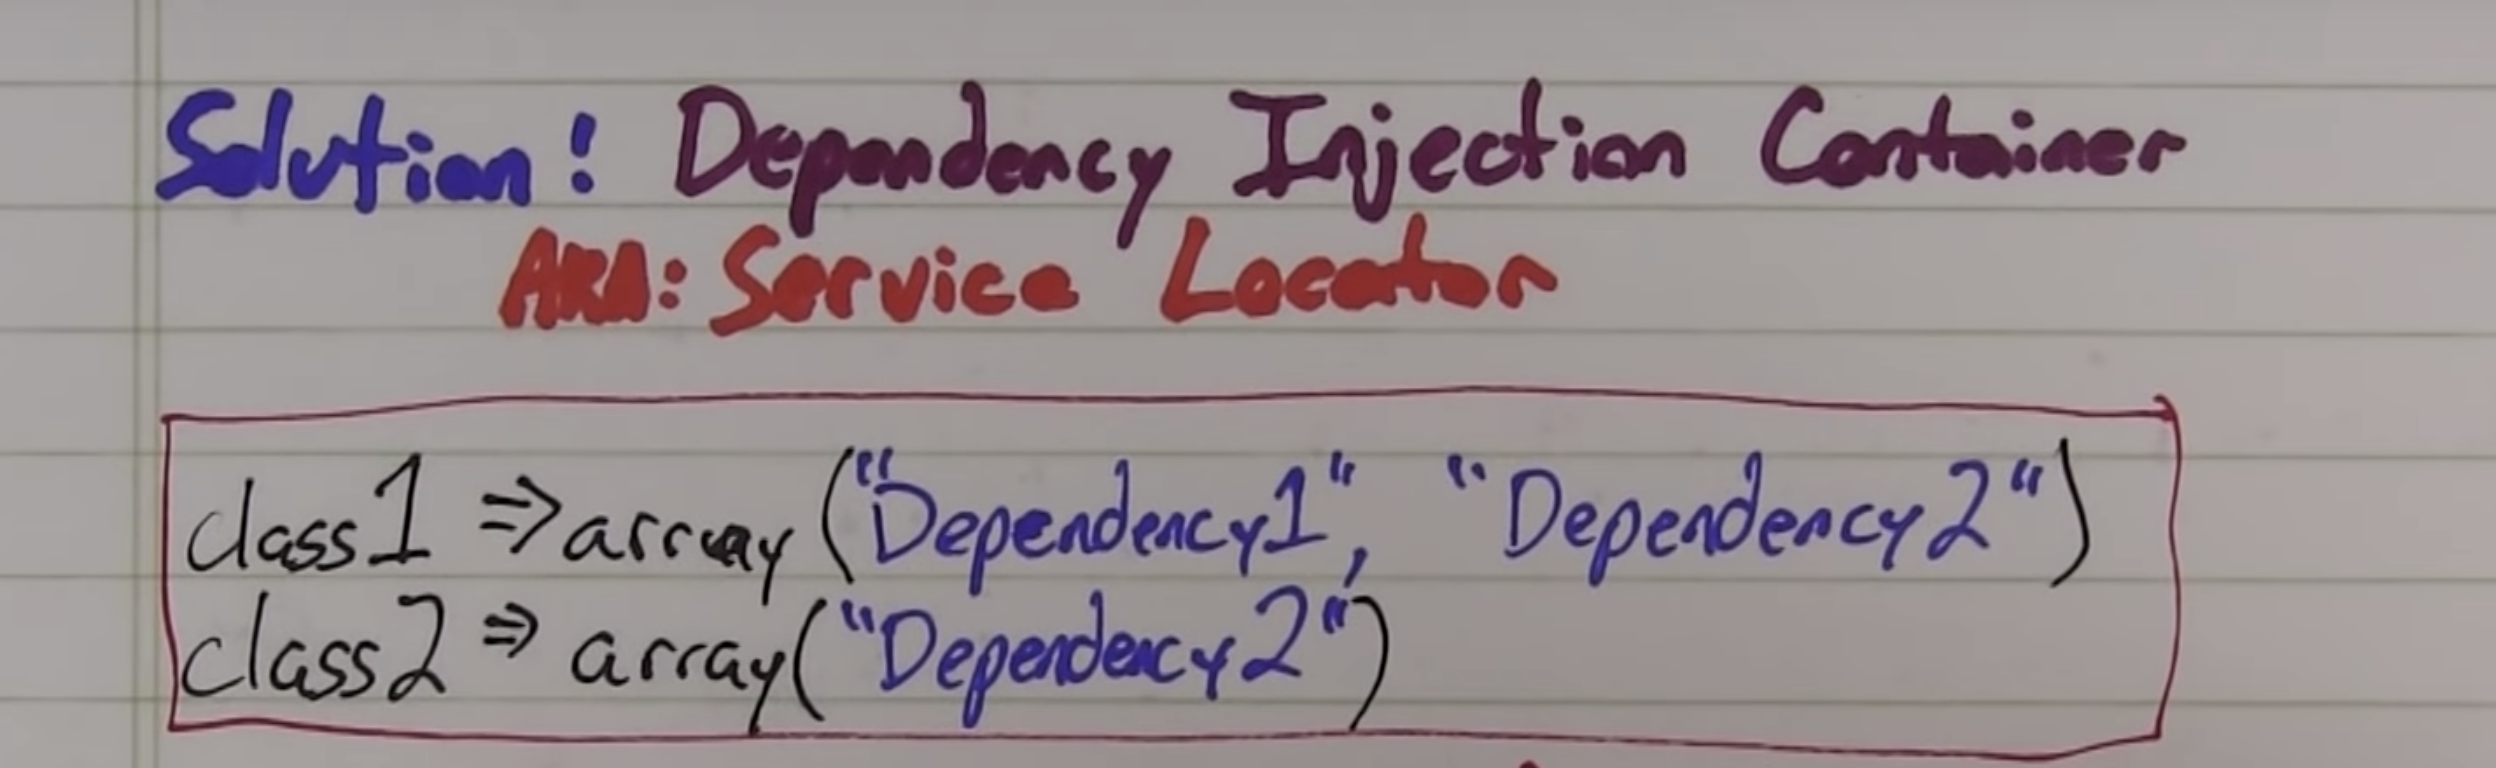 Solution! Dependency Injection Container
AKA: Service Locator
class1 => array ("Dependency1", "Dependency2")
class2 => array("Dependency2")